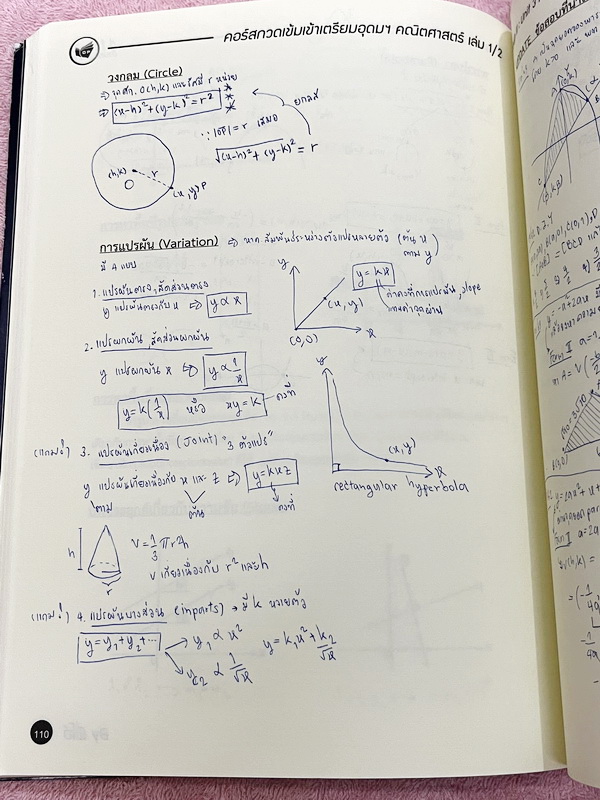 คอร์สกวดเข้มเข้าเตรียมอุดมฯ คณิตศาสตร์ เล่ม 1/2
วงกลม (Circle)
⇒ จุดศก. O(h,k) และรัศมี r หน่วย
⇒ (x-h)²+(y-k)² = r²
ยกกำลัง
∵ |OP| = r เสมอ
√(x-h)²+(y-k)² = r
(h,k)
r
O
(x,y) P
การแปรผัน (Variation) ⇒ หาค.สัมพันธ์ระหว่างตัวแปรหลายตัว (ต้น x
ตาม y)
มี 4 แบบ
1. แปรผันตรง, สัดส่วนตรง
y แปรผันตรงกับ x ⇒ y ∝ x
y
y = kx
(x,y)
ค่าคงที่การแปรผัน, slope
(0,0)
x
2. แปรผกผัน, สัดส่วนผกผัน
y แปรผกผัน x ⇒ y ∝ 1/x
y = k(1/x) หรือ xy = k คงที่
y
(x,y)
x
rectangular hyperbola
(แถมจ้า) 3. แปรผันเกี่ยวเนื่อง (Joint) "3 ตัวแปร"
y แปรผันเกี่ยวเนื่องกับ x และ z ⇒ y = kxz
ตาม
ต้น
คงที่
h
r
V = 1/3 πr²h
V เกี่ยวเนื่องกับ r² และ h
(แถมจ้า) 4. แปรผันบางส่วน (inparts) → มี k หลายตัว
y = y₁+y₂+...
y₁ ∝ x²
y₂ ∝ 1/√x
y = k₁x² + k₂/√x
110